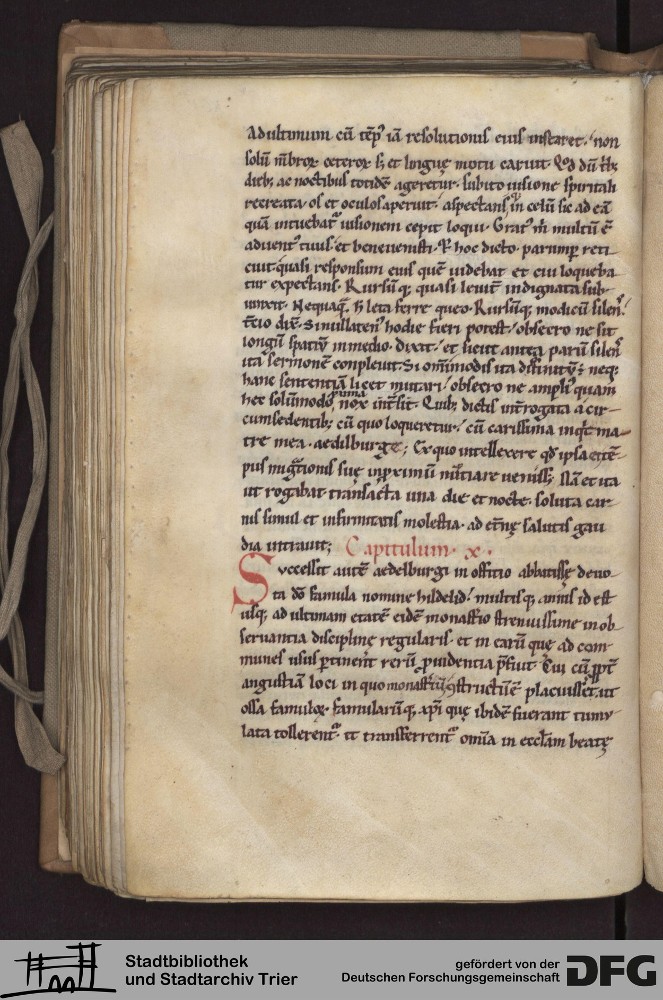 Ad ultimum cū tēp' iā resolutionis eius instaret. non
solū mēbroꝝ ceteroꝝ sꝫ et linguę motu caruit. Qd dū trib;
dieb; ac noctibus totidē ageretur. subito uisione spiritali
recreata. os et oculos aperuit. aspectans in celū sic ad eā
quā intuebat uisionem cepit loqui. Grat' m̄ multū ē
aduent' tuus. et beneuenisti. & hoc dicto. parumper reti
cuit. quasi responsum eius quē uidebat et cui loqueba
tur expectans. Rursūq; quasi leuit̄ indignata sub-
iunxit. Nequaq̄ h̄ leta ferre queo. Rursūq; modicū silen
tio dix̄. Si nullaten' hodie fieri potest. obsecro ne sit
longū spatiū in medio. dixit. et sicut antea parū silen
ita sermonē conpleuit. Si om̄imodis ita diffinitū ē neq;
hanc sententiā licet mutari. obsecro ne ampli' quam
hec solūmodo ꝓxima nox int̄sit. Quib; dictis int̄rogata a cir-
cumsedentib; cū quo loqueretur. cū carissima inq̇t ma-
tre mea. aedilburge; Ex quo intellexere qd ipsa ei tē-
pus mig̓tionis suę inꝓximū nūtiare uenisse; Nā et ita
ut rogabat. transacta una die et nocte. soluta car
nis simul et infirmitatis molestia. ad et̄nę salutis gau
dia intrauit; Capitulum. x.
Successit autē aedelburgi in offitio abbatissę deuo-
ta dō famula nomine hildelid. multisq; annis id est
usq; ad ultimam etatē eidē monast̄io strenuissime in ob-
seruantia disciplinę regularis. et in earū quę ad com
munes usus ꝑtinent rerū ꝓuidentia p̄fuit. Cui cū ꝓpt̄
angustiā loci in quo monastiū ꝯstructū ē placuisset. ut
ossa famuloꝝ famularūq; xp̄i quę ibidē fuerant tumu
lata tollerent̄. et transferrent̄ om̄ia in eccl̄am beatę
Stadtbibliothek
und Stadtarchiv Trier
gefördert von der
Deutschen Forschungsgemeinschaft
DFG